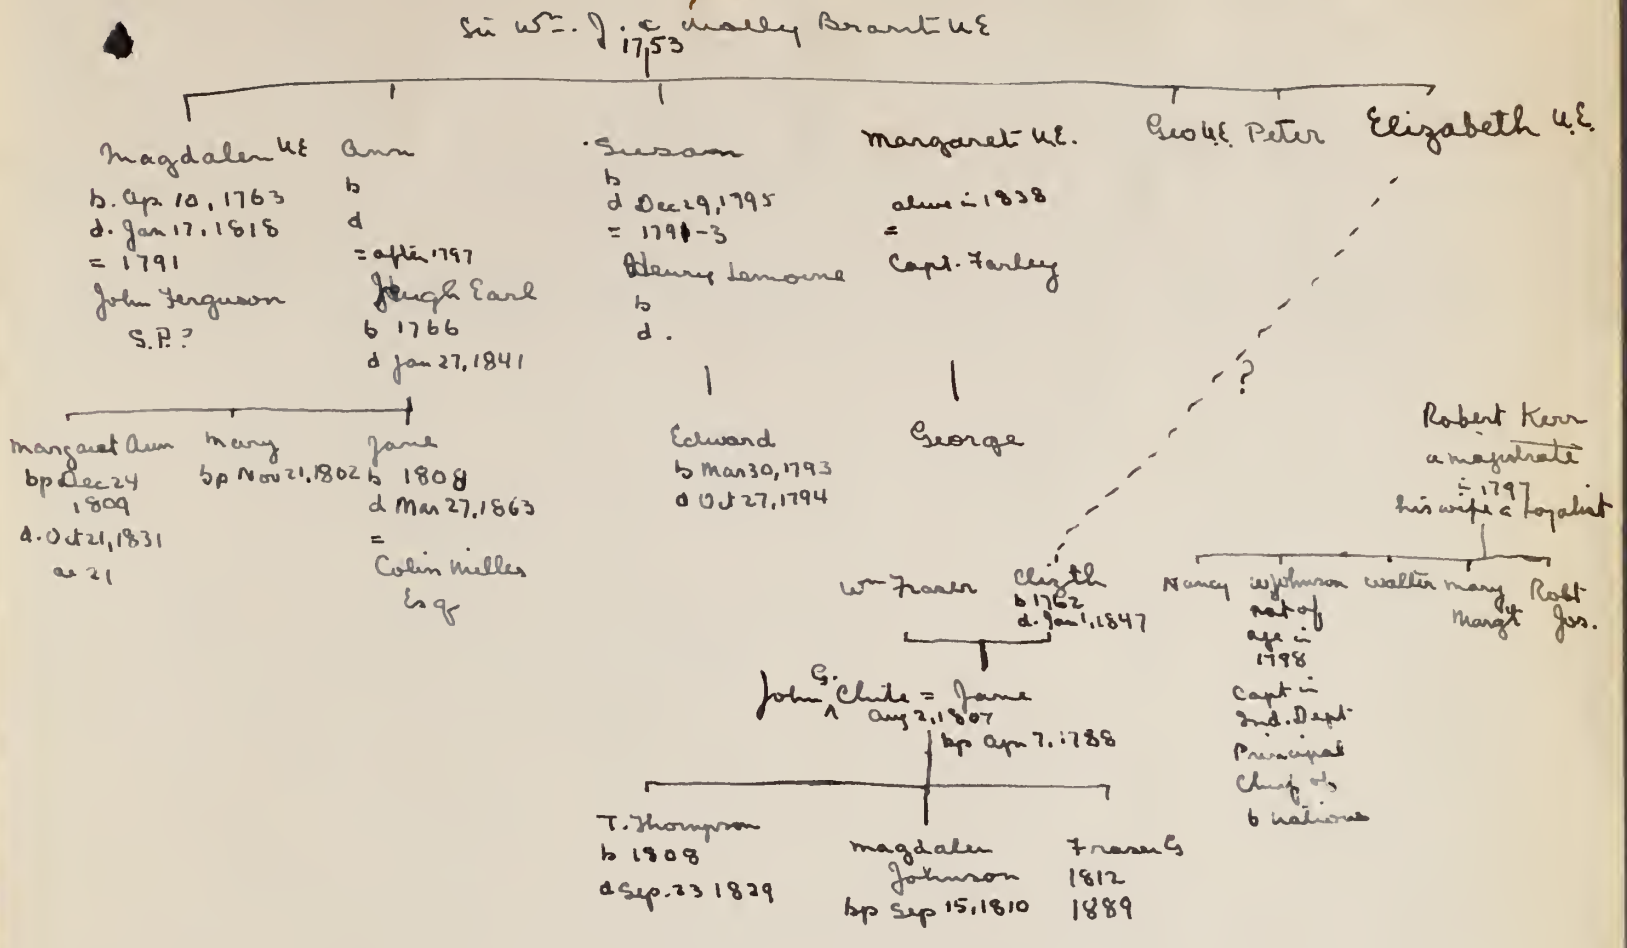 Sir Wm. J. & Molly Brant UE
1753
Magdalen UE
b. Ap 10, 1763
d. Jan 17, 1818
= 1791
John Ferguson
S.P.?
Ann
b
d
= after 1797
Hugh Earl
b 1766
d Jan 27, 1841
Susan
b
d Dec 29, 1795
= 1791-3
Henry Lemoine
b
d.
Margaret U.E.
alive in 1838
=
Capt. Farley
Geo U.E. Peter
Elizabeth U.E.
?
Margaret Ann
bp Dec 24
1809
d. Oct 21, 1831
ae 21
Mary
bp Nov 21, 1802
Jane
b 1808
d Mar 27, 1863
=
Colin Miller
Esq
Edward
b Mar 30, 1793
d Oct 27, 1794
George
Robert Kerr
a magistrate
in 1797
his wife a Loyalist
Wm Fraser
Elizth
b 1762
d. Jan 1, 1847
Nancy
W Johnson
not of
age in
1798
Capt in
Ind. Dept
Principal
Chief of
6 nations
Walter
Mary
Margt
Robt
Jos.
John G. Clute = Jane
Aug 2, 1807
bp Apr 7, 1788
T. Thompson
b 1808
d Sep. 23 1829
Magdalen
Johnson
bp Sep 15, 1810
Fraser G
1812
1889